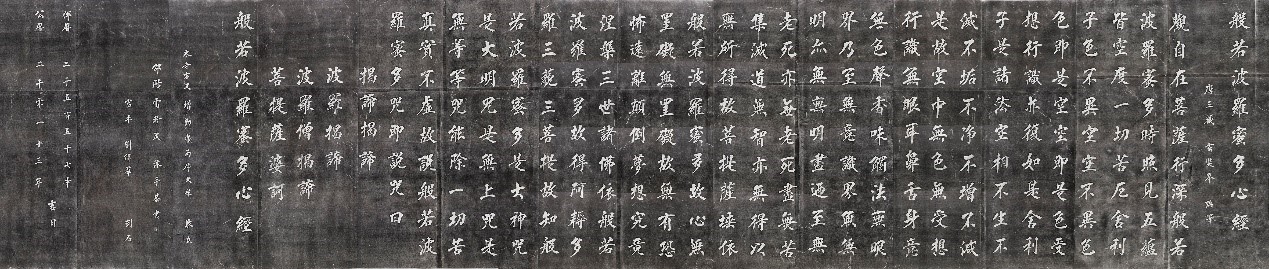 般若波羅蜜多心經
唐三藏 玄奘奉 詔譯
觀自在菩薩行深般若
波羅蜜多時照見五蘊
皆空度一切苦厄舍利
子色不異空空不異色
色即是空空即是色受
想行識亦復如是舍利
子是諸法空相不生不
滅不垢不淨不增不減
是故空中無色無受想
行識無眼耳鼻舌身意
無色聲香味觸法無眼
界乃至無意識界無無
明亦無無明盡乃至無
老死亦無老死盡無苦
集滅道無智亦無得以
無所得故菩提薩埵依
般若波羅蜜多故心無
罣礙無罣礙故無有恐
怖遠離顛倒夢想究竟
涅槃三世諸佛依般若
波羅蜜多故得阿耨多
羅三藐三菩提故知般
若波羅蜜多是大神咒
是大明咒是無上咒是
無等等咒能除一切苦
真實不虛故說般若波
羅蜜多咒即說咒曰
揭諦揭諦
波羅揭諦
波羅僧揭諦
菩提薩婆訶
般若波羅蜜多心經
刻石
佛曆 二千五百五十七年
公曆 二千零一十三年 吉日